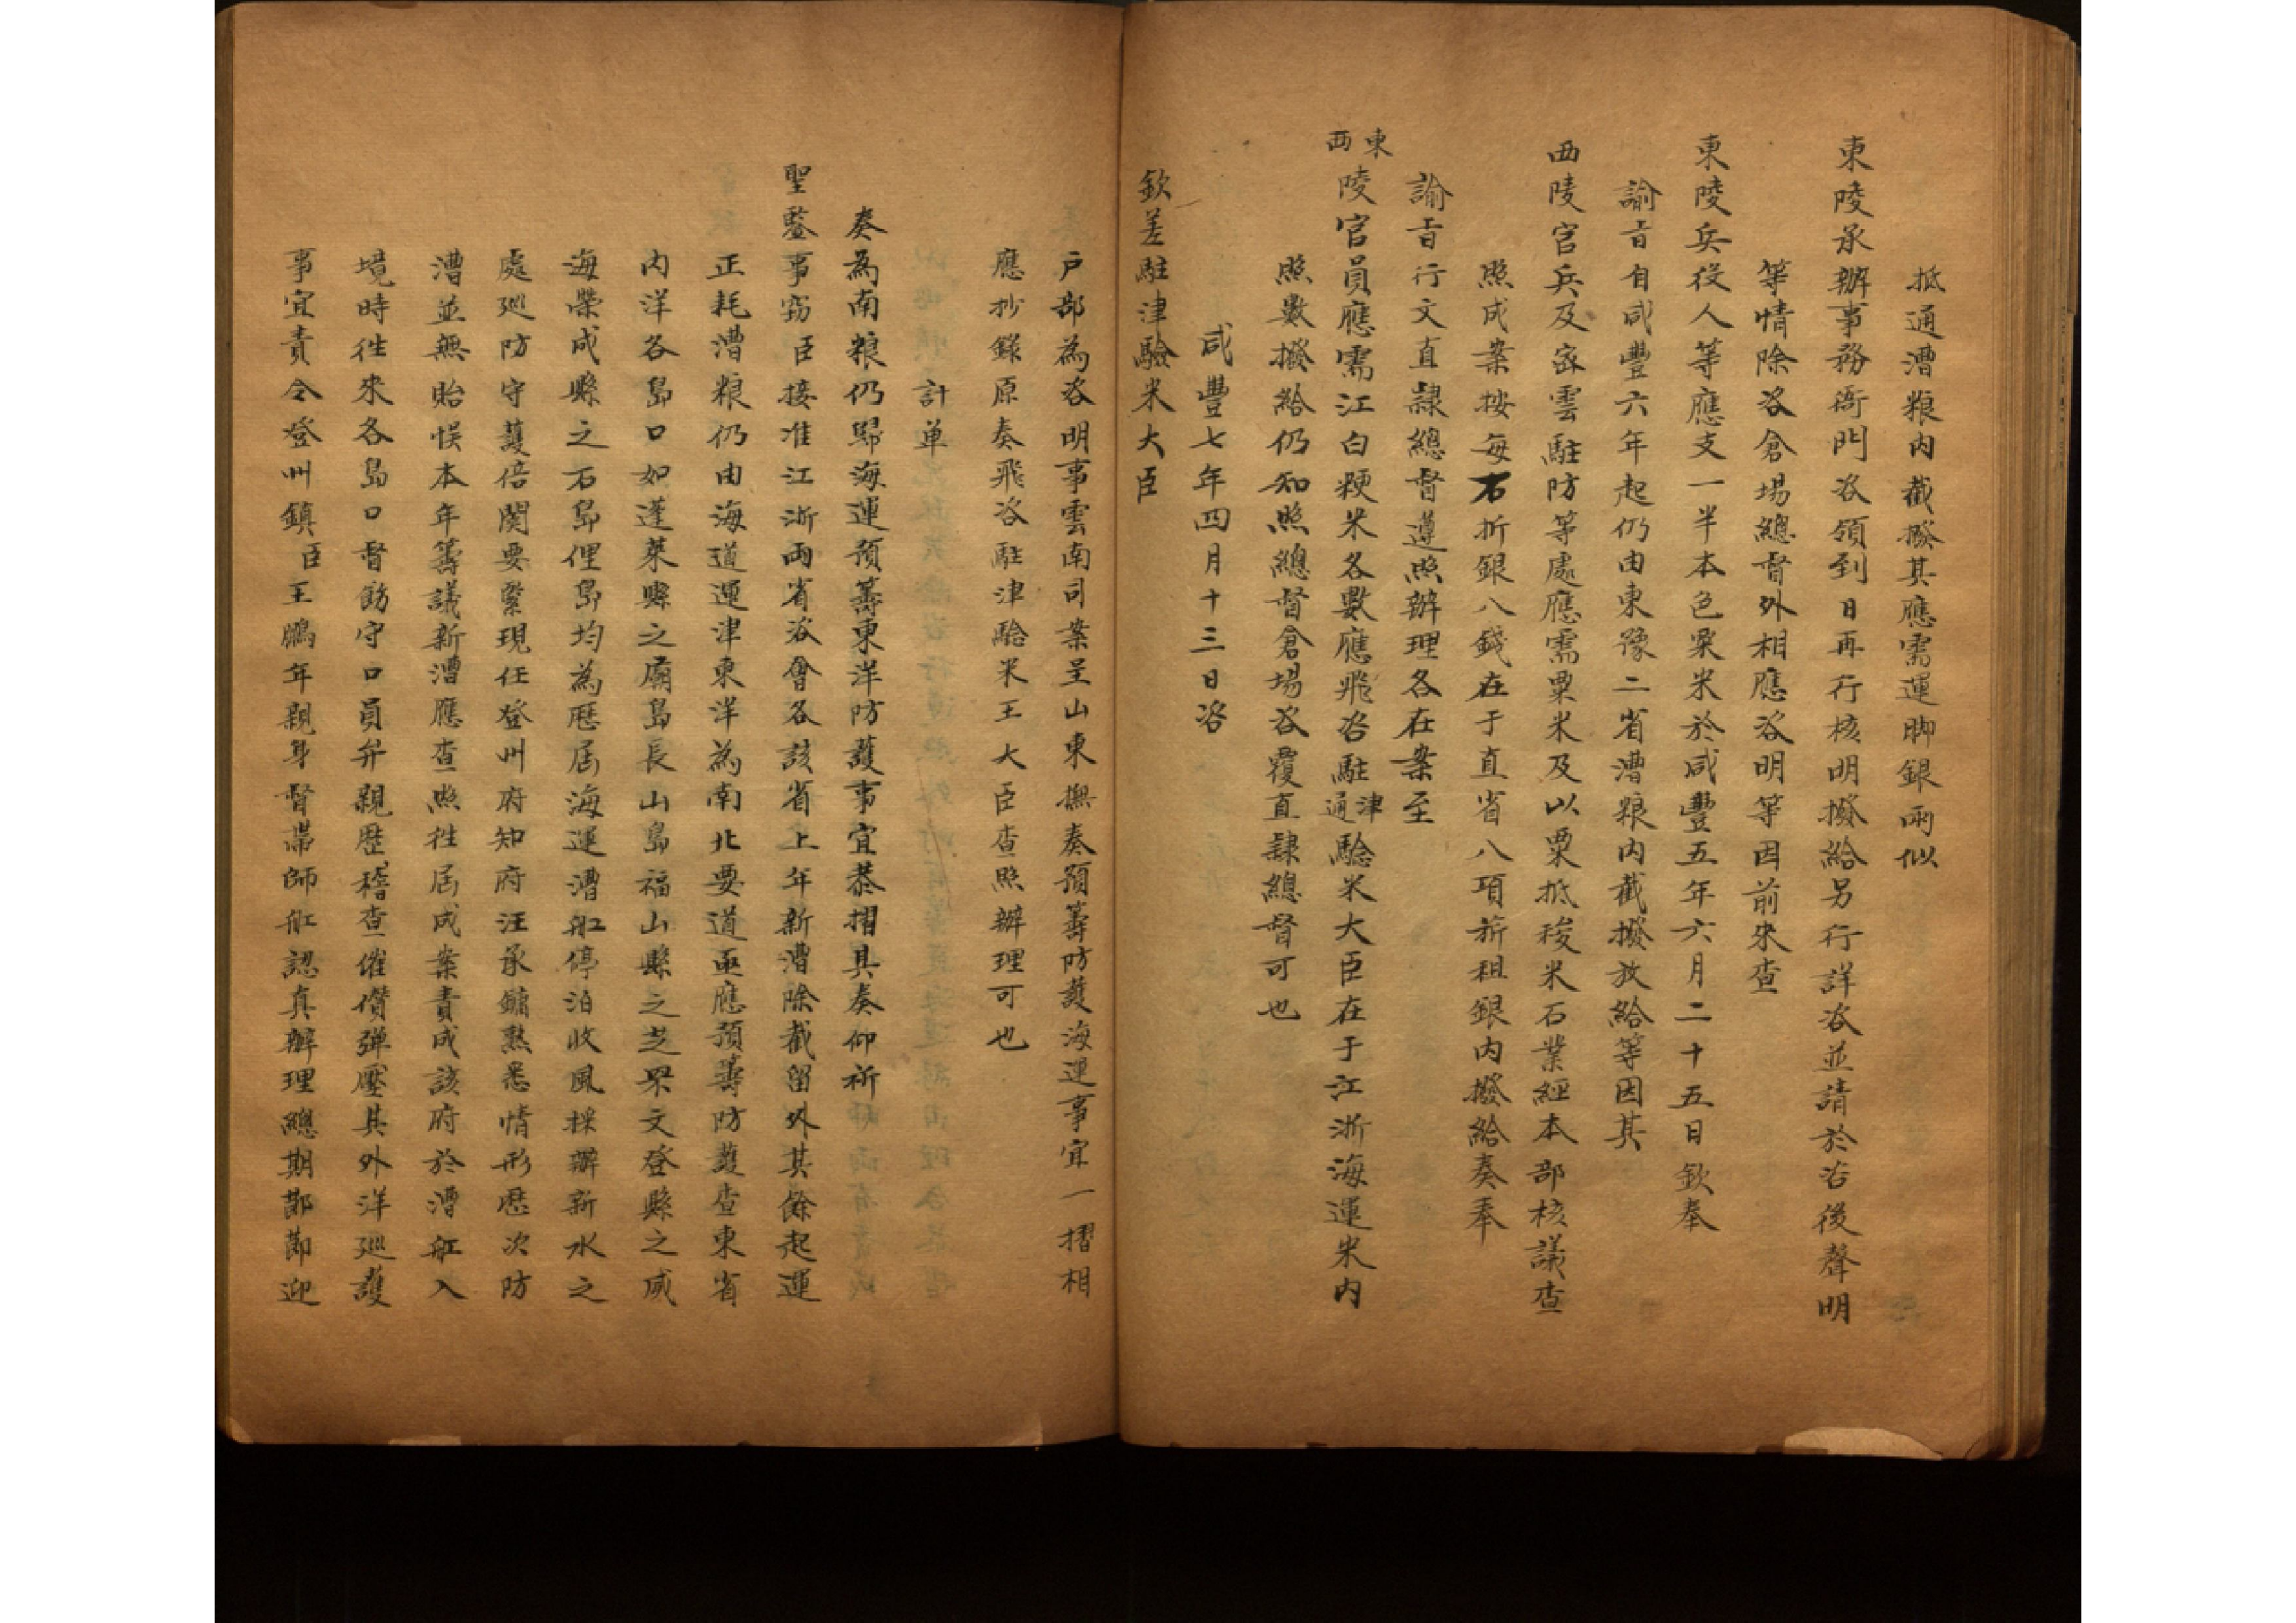 抵通漕粮內截撥其應需運脚銀兩似
東陵承辦事務衙門咨領到日再行核明撥給另行詳咨並請於咨後聲明
等情除咨倉場總督外相應咨明等因前來查
東陵兵役人等應支一半本色粟米於咸豐五年六月二十五日欽奉
諭旨自咸豐六年起仍由東豫二省漕粮內截撥放給等因其
西陵官兵及密雲駐防等處應需粟米及以粟抵稜米石業經本部核議查
照成案按每石折銀八錢在于直省八項薪租銀內撥給奏奉
諭旨行文直隸總督遵照辦理各在案至
東西陵官員應需江白粳米各數應飛咨駐津通驗米大臣在于江浙海運米內
照數撥給仍知照總督倉場咨覆直隸總督可也
咸豐七年四月十三日咨
欽差駐津驗米大臣
戶部為咨明事雲南司案呈山東撫奏預籌防護海運事宜一摺相
應抄錄原奏飛咨駐津驗米王大臣查照辦理可也
計單
奏為南粮仍歸海運預籌東洋防護事宜恭摺具奏仰祈
聖鑒事竊臣接准江浙兩省咨會各該省上年新漕除截留外其餘起運
正耗漕粮仍由海道運津東洋為南北要道亟應預籌防護查東省
內洋各島口如蓬萊縣之廟島長山島福山縣之芝罘文登縣之威
海榮成縣之石島俚島均為歷屆海運漕船停泊收風採辦新水之
處巡防守護倍關要緊現任登州府知府汪承鏞熟悉情形歷次防
漕並無貽悞本年籌議新漕應查照徃屆成案責成該府於漕船入
境時徃來各島口督飭守口員弁親歷稽查催儹彈壓其外洋巡護
事宜責令登州鎮臣王鵬年親身督帶師船認真辦理總期節節迎